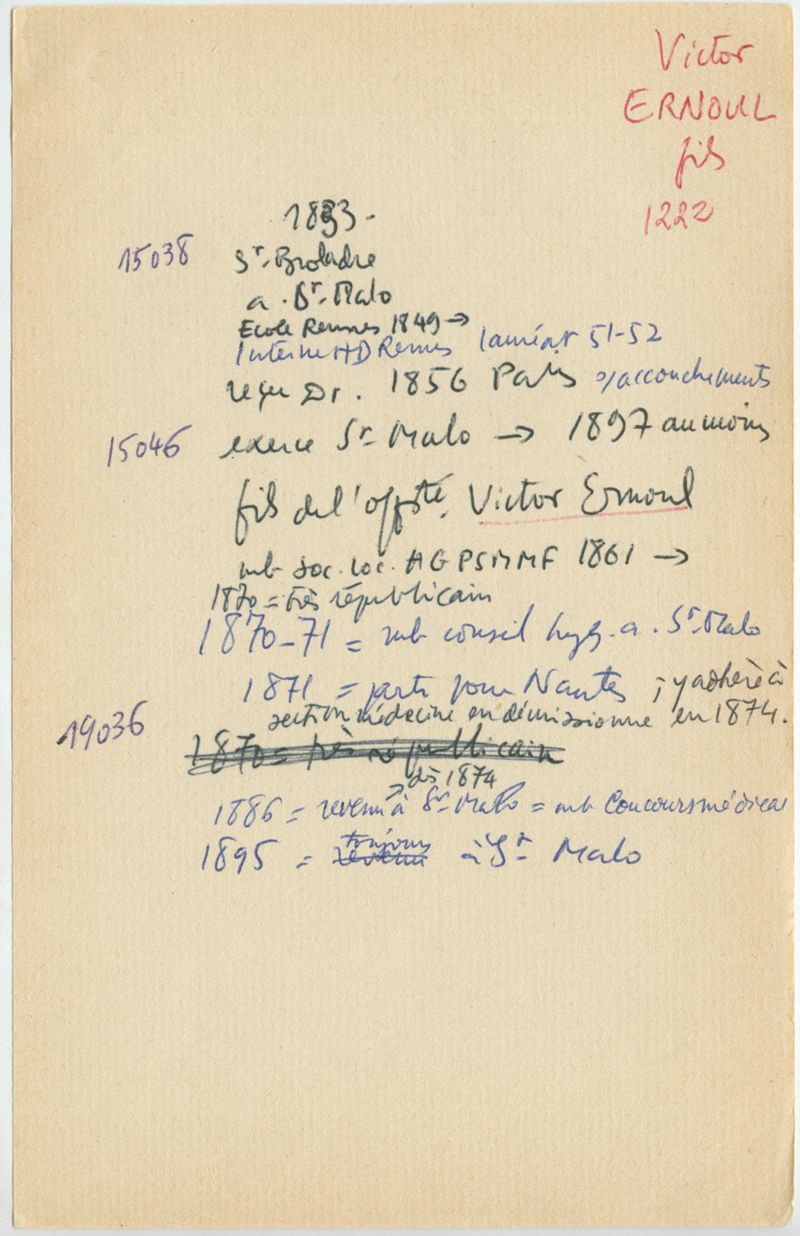 Victor
ERNOUL
fils
1222
1833-
15038 St-Broladre
a. St-Malo
Ecole Rennes 1849 →
Interne HD Rennes lauréat 51-52
reçu Dr. 1856 Paris s/accouchements
15046 exerce St Malo → 1897 au moins
fils de l'off Victor Ernoul
mb soc. loc. AGPSMMF 1861 →
1870 = très républicain
1870-71 = mb conseil hyg. a. St-Malo
1871 = parti pour Nantes ; y adhère à
section médecine en démissionne en 1874.
19036 1870 = très républicain
dès 1874
1886 = revenu à St-Malo = mb Concours médical
toujours
1895 = revenu à St Malo